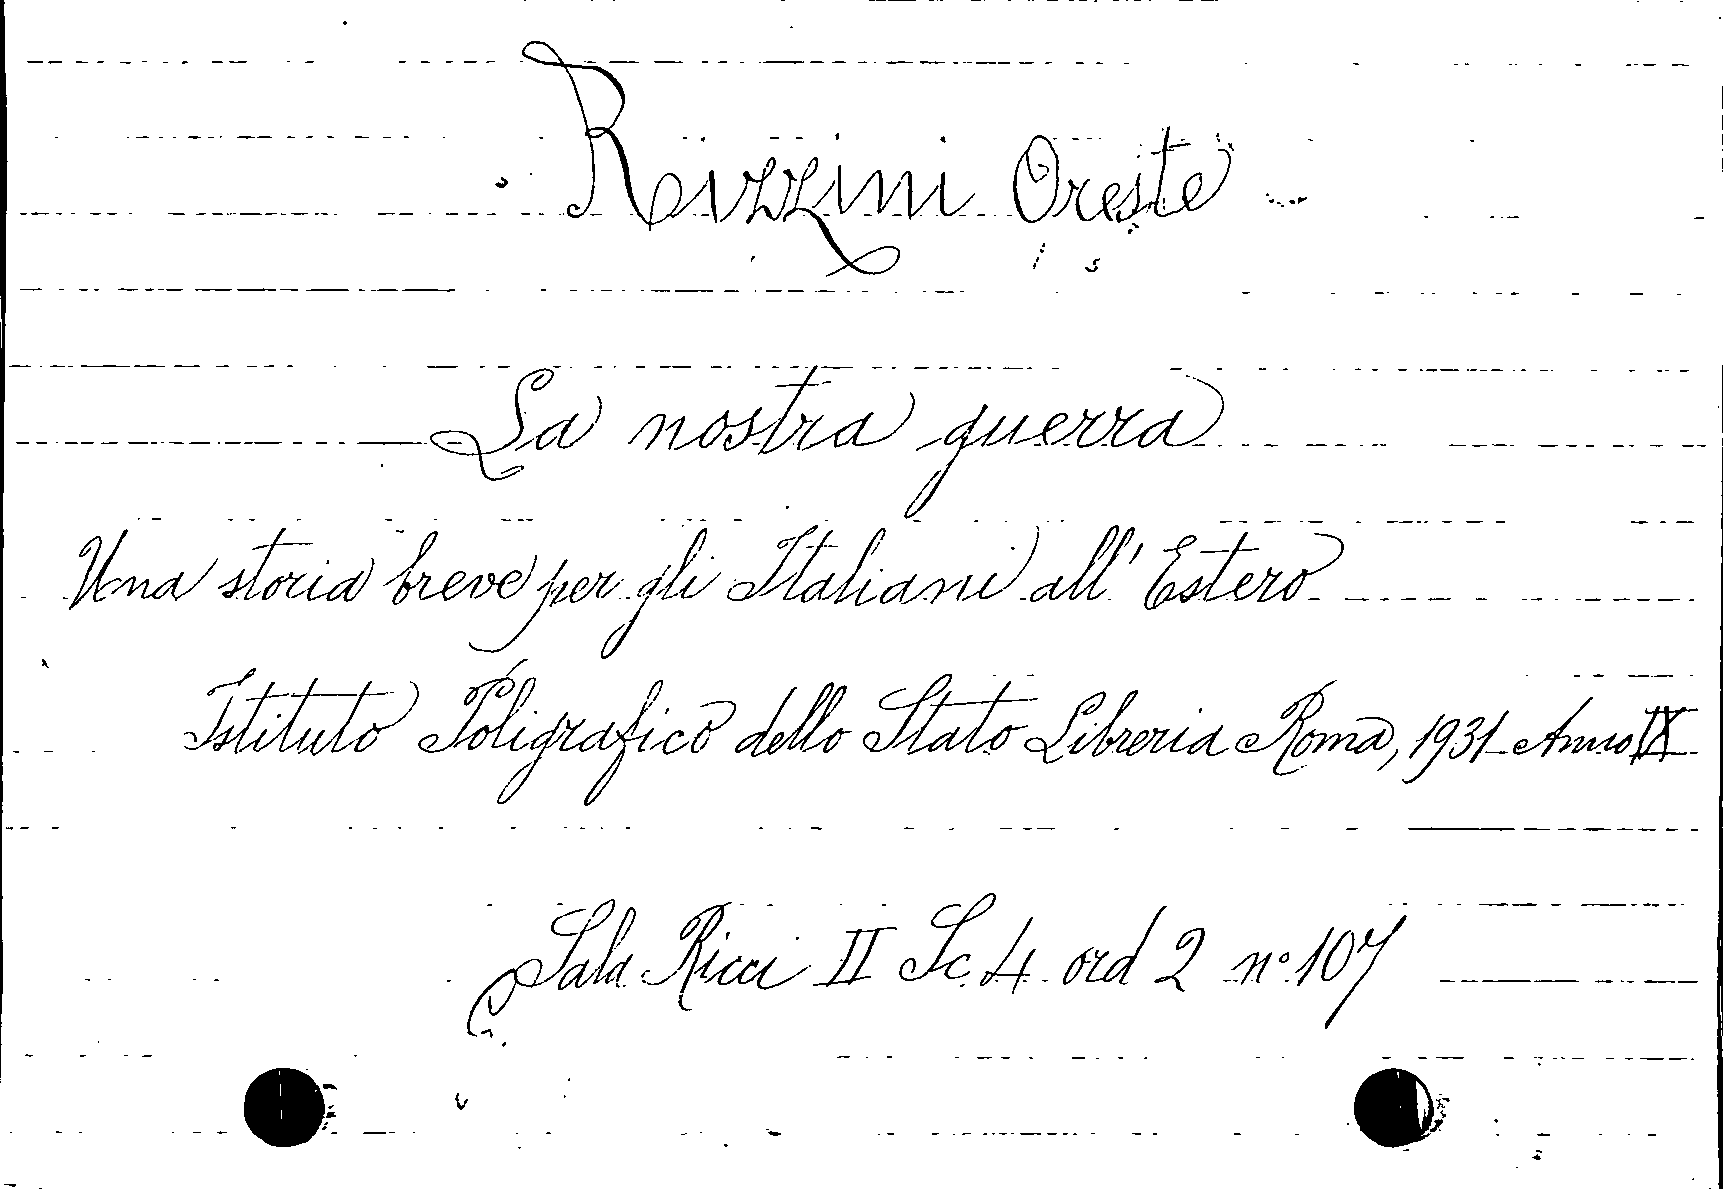 Rizzini Oreste
La nostra guerra
Una storia breve per gli Italiani all' Estero
Istituto Poligrafico dello Stato Libreria Roma, 1931 Anno IX
Sala Ricci II Sc. 4 ord 2 n° 107